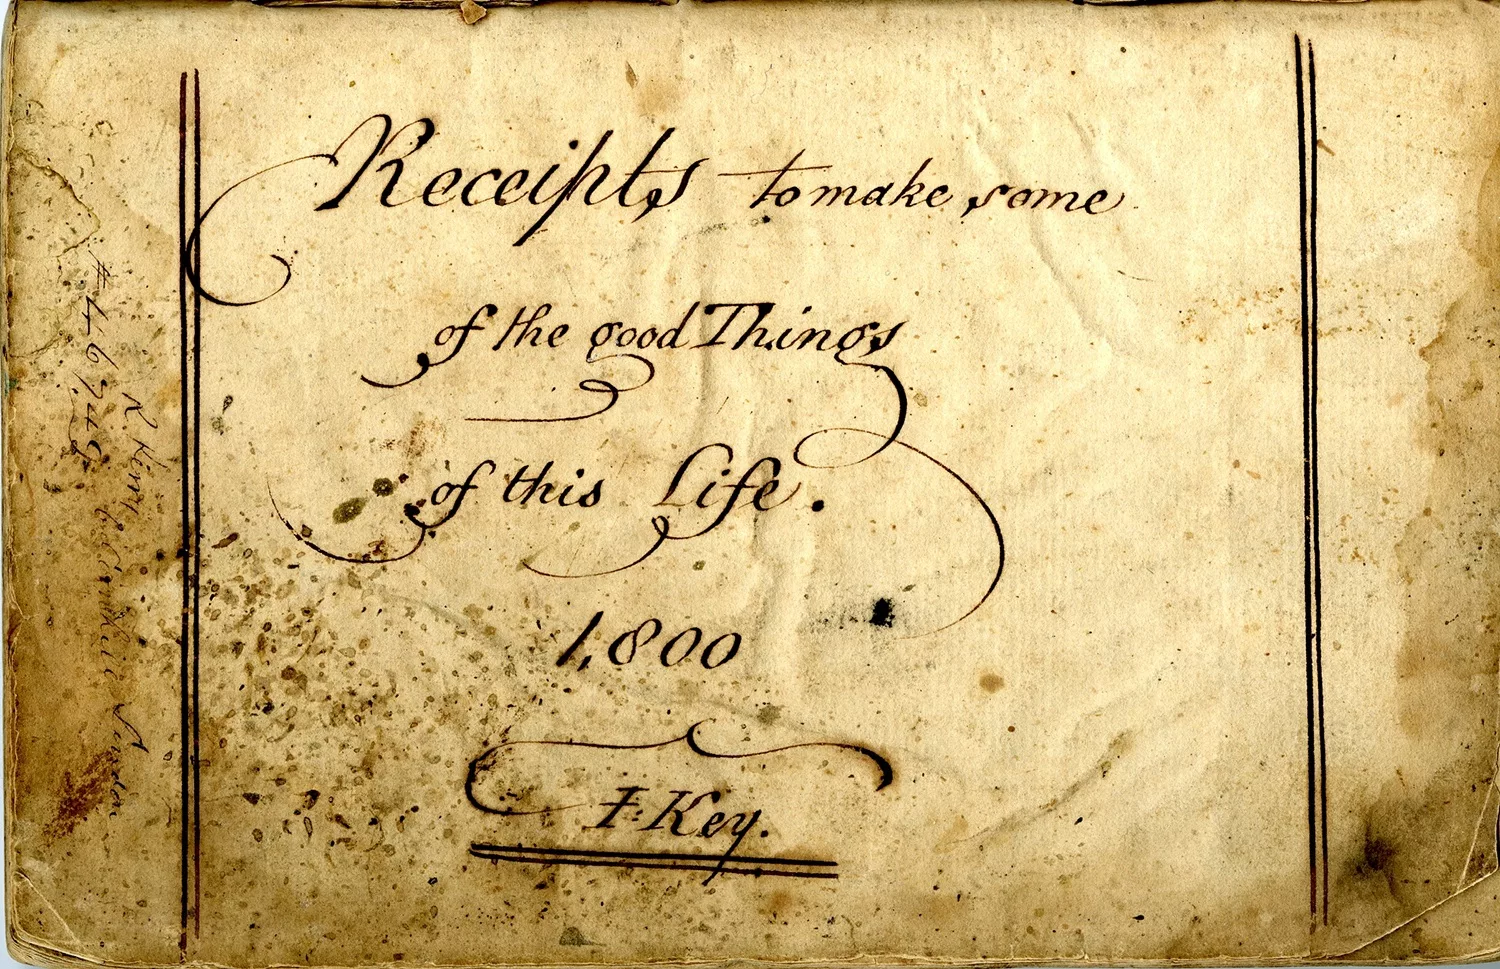 Receipts to make some
of the good Things
of this Life.
1,800
I: Key.
# 46749
R. Henry